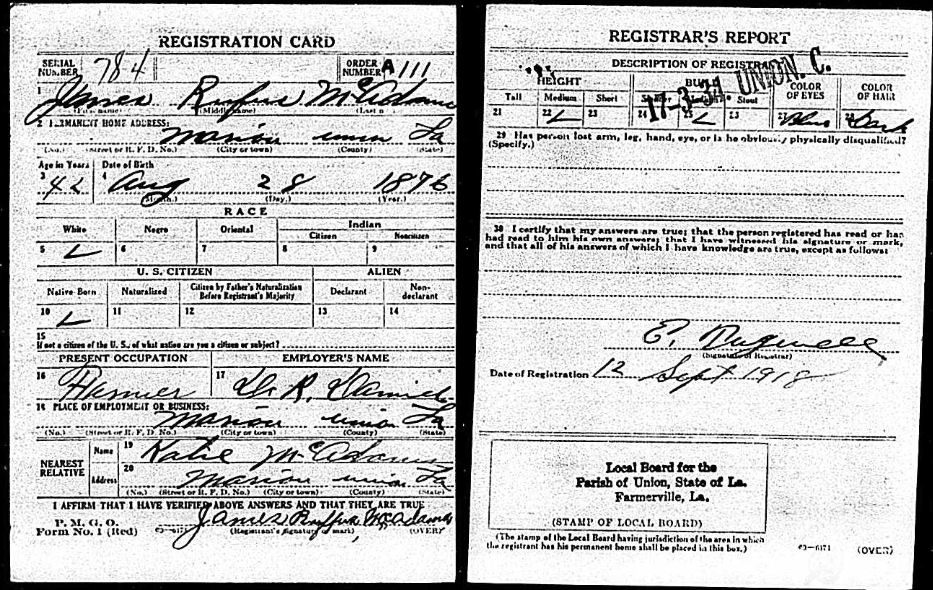 REGISTRATION CARD
SERIAL NUMBER 784 ORDER NUMBER A 111
1 James Rufus McAdams
(First name) (Middle name) (Last name)
2 PERMANENT HOME ADDRESS:
Marion union La
(No.) (Street or R. F. D. No.) (City or town) (County) (State)
Age in Years Date of Birth
3 42 4 Aug 28 1876
(Month.) (Day.) (Year.)
RACE
White Negro Oriental Indian
Citizen Noncitizen
5 6 7 8 9
U. S. CITIZEN ALIEN
Native Born Naturalized Citizen by Father's Naturalization Before Registrant's Majority Declarant Non-declarant
10 11 12 13 14
15
If not a citizen of the U. S., of what nation are you a citizen or subject?
PRESENT OCCUPATION EMPLOYER'S NAME
16 Farmer 17 R.
18 PLACE OF EMPLOYMENT OR BUSINESS:
Marion union La
(No.) (Street or R. F. D. No.) (City or town) (County) (State)
NEAREST RELATIVE
Name 19 Katie McAdams
Address 20 Marion union La
(No.) (Street or R. F. D. No.) (City or town) (County) (State)
I AFFIRM THAT I HAVE VERIFIED ABOVE ANSWERS AND THAT THEY ARE TRUE
P. M. G. O.
Form No. 1 (Red) James Rufus McAdams
(Registrant's signature or mark) (OVER)
REGISTRAR'S REPORT
DESCRIPTION OF REGISTRANT
17-3-31 UNION. C.
HEIGHT BUILD COLOR OF EYES COLOR OF HAIR
Tall Medium Short Slender Medium Stout
21 22 23 24 25 27 Blue 28 Dark
29 Has person lost arm, leg, hand, eye, or is he obviously physically disqualified?
(Specify.)
30 I certify that my answers are true; that the person registered has read or has
had read to him his own answers; that I have witnessed his signature or mark,
and that all of his answers of which I have knowledge are true, except as follows:
E.
(Signature of Registrar)
Date of Registration 12 Sept 1918
Local Board for the
Parish of Union, State of La.
Farmerville, La.
(STAMP OF LOCAL BOARD)
(The stamp of the Local Board having jurisdiction of the area in which
the registrant has his permanent home shall be placed in this box.)
03—6171 (OVER)